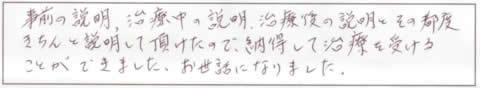 事前の説明、治療中の説明、治療後の説明とその都度
きちんと説明して頂けたので、納得して治療を受ける
ことができました。お世話になりました。